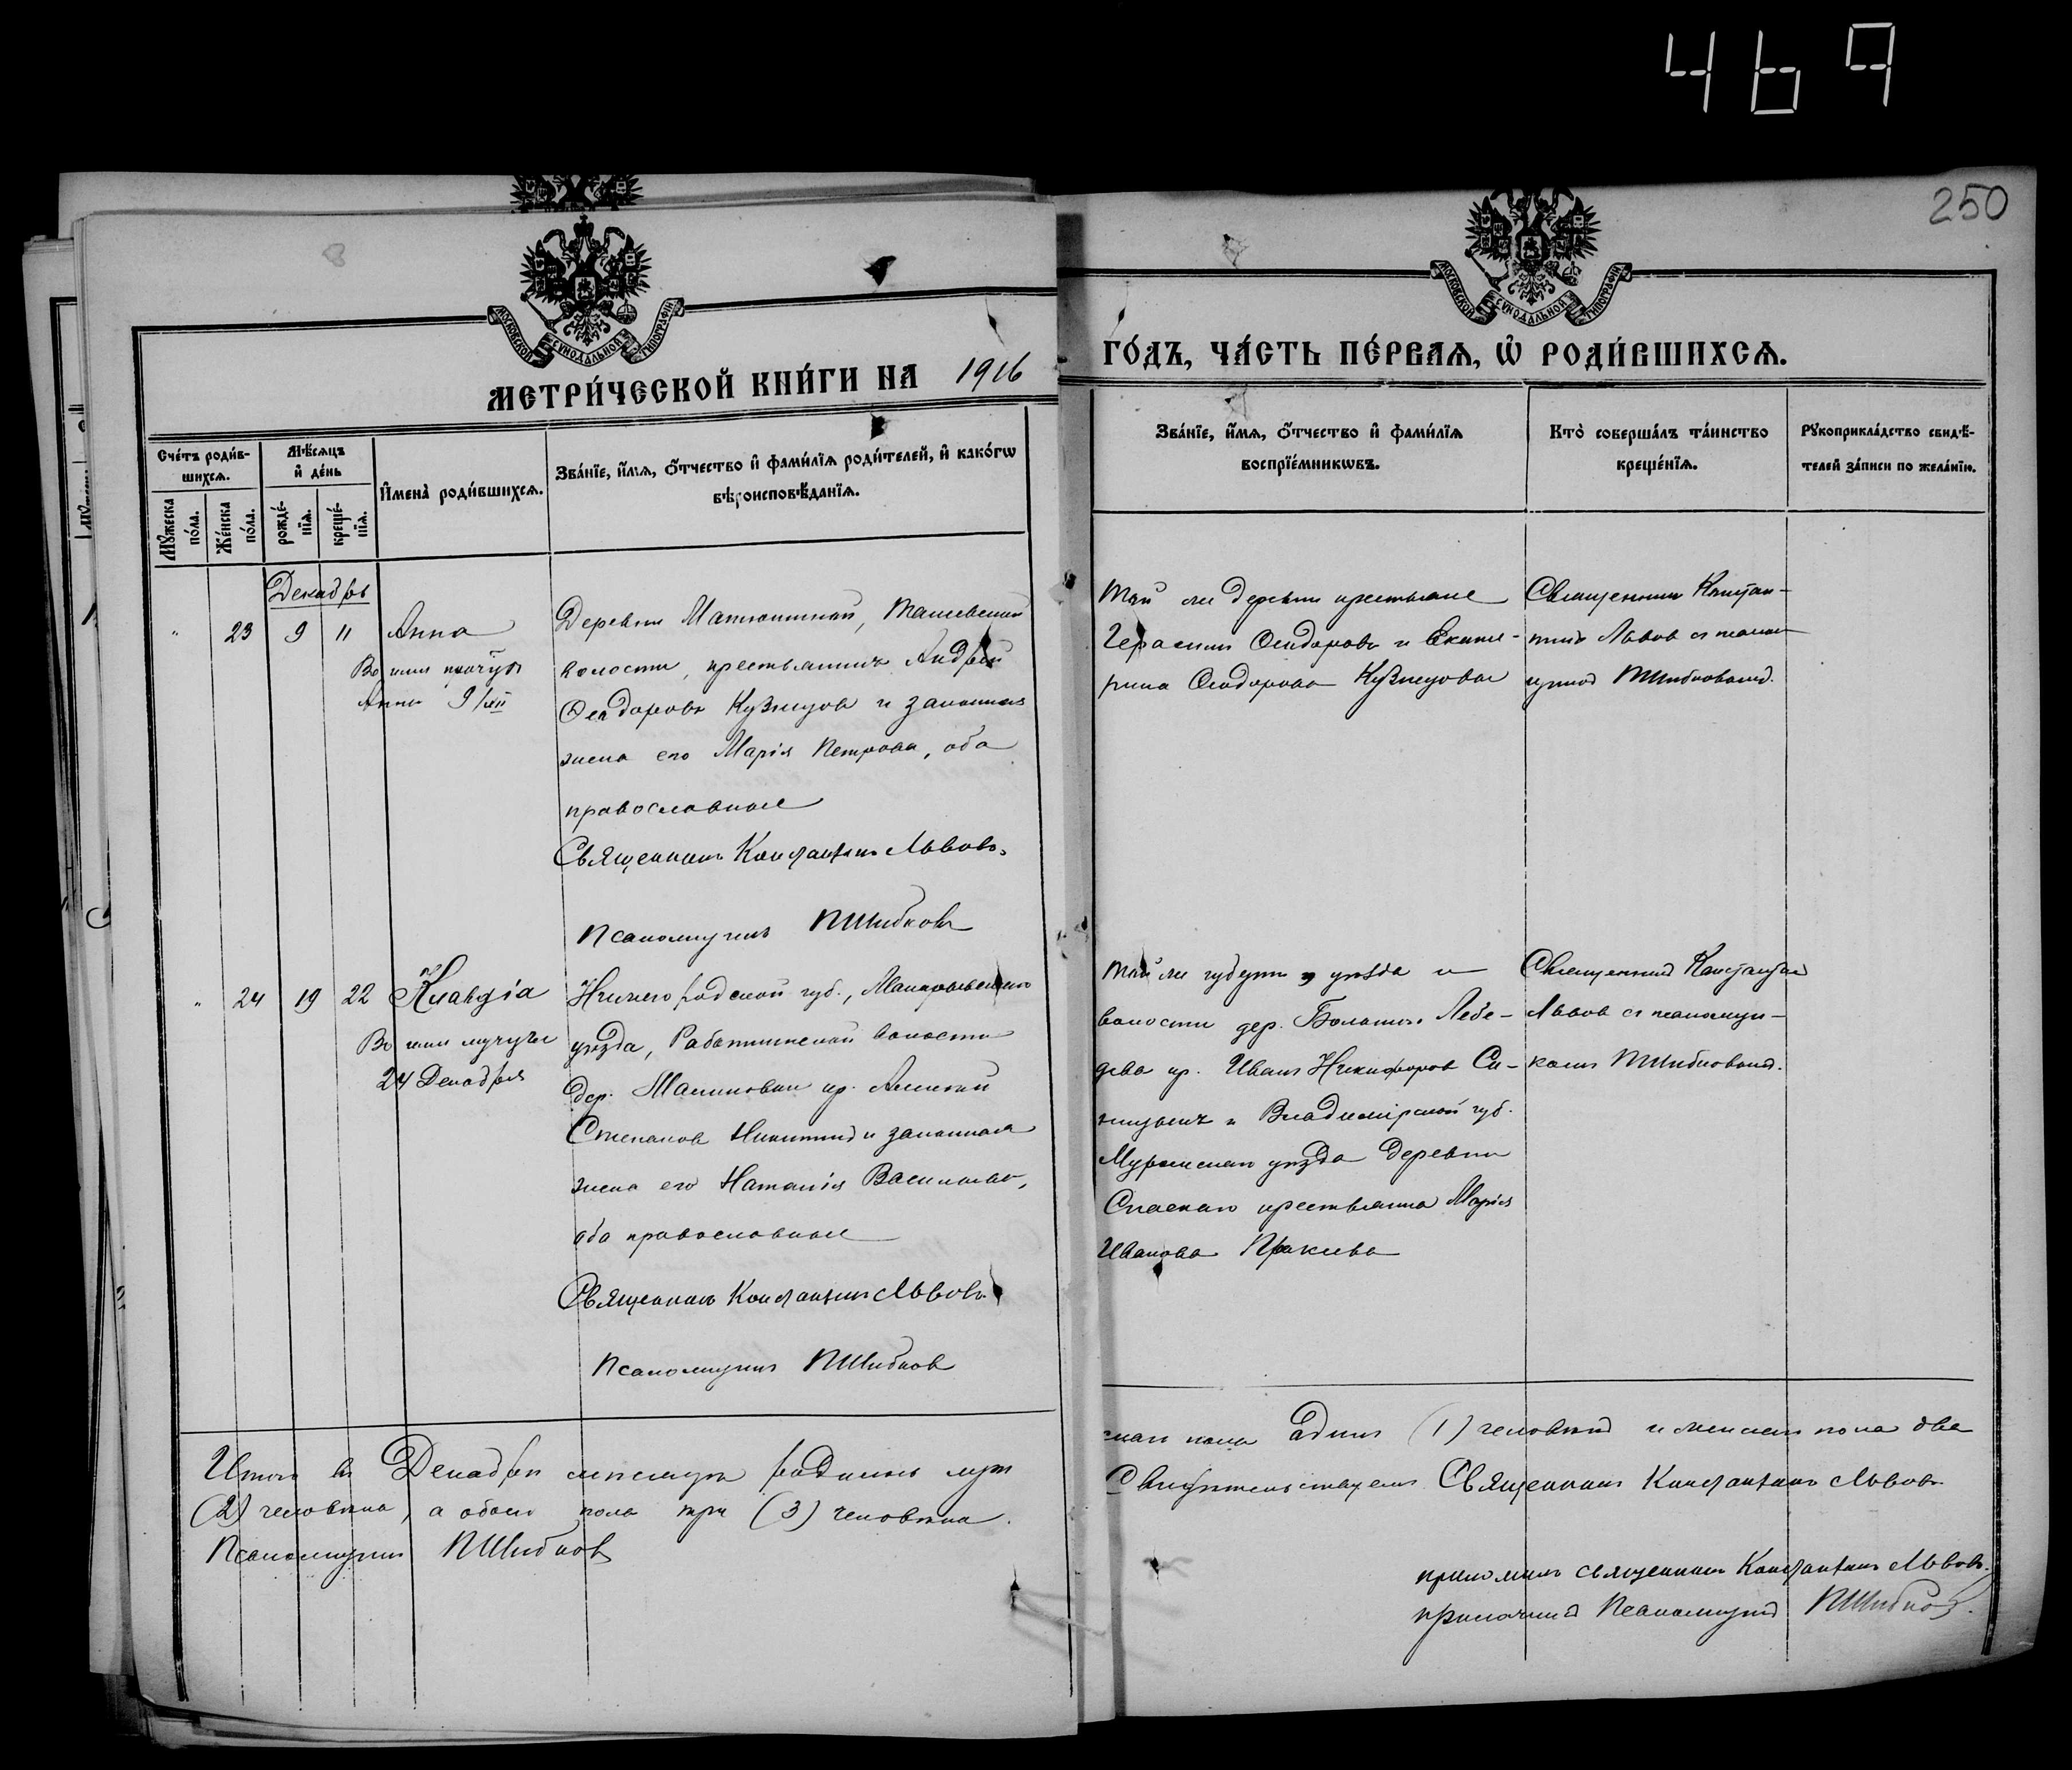 469
250
МОСКОВСКОЙ СѴНОДАЛЬНОЙ ТИПОГРАФІИ
МОСКОВСКОЙ СѴНОДАЛЬНОЙ ТИПОГРАФІИ
МЕТРИ́ЧЕСКОЙ КНИ́ГИ НА 1916
ГО́ДЪ, ЧА́СТЬ ПЕ́РВАЯ, Ѡ҆ РОДИ́ВШИХСЯ.
Сче́тъ роди́в-
шихся.
Мꙋ́жеска
по́ла.
Же́нска
по́ла.
Мѣ́сяцъ
и҆ де́нь
рожде́-
нїя.
креще́-
нїя.
И҆мена̀ роди́вшихся.
Зва́нїе, и҆́мя, ѻ҆́тчество и҆ фами́лїя роди́телей, и҆ како́гѡ
вѣроисповѣ́данїя.
Зва́нїе, и҆́мя, ѻ҆́тчество и҆ фами́лїя
воспрїе́мникѡвъ.
Кто̀ соверша́лъ та́инство
креще́нїя.
Рꙋкоприкла́дство свидѣ́-
телей за́писи по жела́нїю.
Декабрь
" 23 9 11 Анна
Анны 9/XII
Деревни Матюшиной,
волости, крестьянинъ Андрей
Ѳеодоровъ Кузнецовъ и законная
жена его Марія Петрова, оба
православные
Священникъ Константинъ Львовъ.
Псаломщикъ ПШибковъ
Той же деревни крестьяне
Герасимъ Ѳеодоровъ и Екате-
рина Ѳеодорова Кузнецовы
Священникъ Констан-
тинъ Львовъ съ псалом-
щикомъ ПШибковымъ.
" 24 19 22 Клавдія
24 Декабря
Нижегородской губ., Макарьевскаго
уѣзда, Работкинской волости
дер. Малиновки кр. Алексѣй
Степановъ Никитинъ и законная
жена его Наталія Васильева,
оба православные
Священникъ Константинъ Львовъ
Псаломщикъ ПШибковъ
Той же губерніи, уѣзда и
волости дер. Лебе-
дева кр. Иванъ Никифоровъ Си-
и Владимірской губ.
Муромскаго уѣзда деревни
Спаскаго крестьянка Марія
Иванова
Священникъ Константинъ
Львовъ съ псаломщи-
комъ ПШибковымъ.
Итого въ Декабрѣ мѣсяцѣ родилось муж
скаго пола одинъ (1) человѣкъ и женскаго пола два
(2) человѣка, а обоего пола три (3) человѣка.
Священникъ Константинъ Львовъ
Псаломщикъ ПШибковъ
приложилъ священникъ Константинъ Львовъ.
приложилъ Псаломщикъ ПШибковъ.